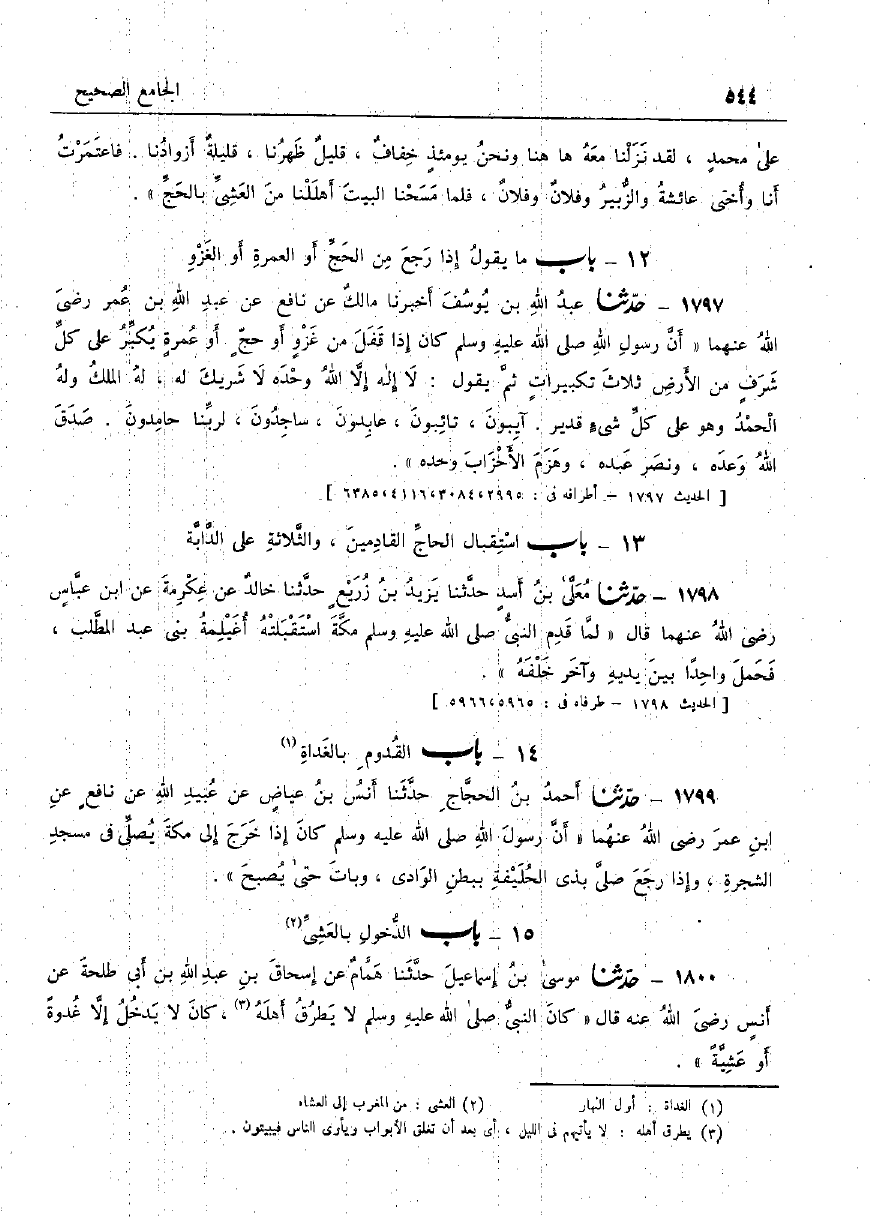 ٥٤٤ الجامع الصحيح
علىٰ محمدٍ ، لقد نَزَلْنا معَهُ ها هنا ونحنُ يومئذٍ خِفافٌ ، قليلٌ ظَهرُنا ، قليلةٌ أزوادُنا . فاعتَمَرْتُ
أنا وأُختى عائشةُ والزُّبيرُ وفلانٌ وفلان ، فلما مَسَحْنا البيتَ أهلَلْنا منَ العَشِىِّ بالحَجِّ » .
١٢ – باب ما يقولُ إذا رَجعَ مِن الحَجِّ أو العمرةِ أو الغَزْوِ
١٧٩٧ – حدّثنا عبدُ اللهِ بن يُوسُفَ أخبرنا مالكٌ عن نافع عن عبدِ اللهِ بن عُمر رضىَ
اللهُ عنهما « أنَّ رسولَ اللهِ صلى الله عليهِ وسلم كان إذا قَفَلَ من غَزْوٍ أو حجٍّ أو عُمرةٍ يُكبِّرُ على كلِّ
شَرَفٍ من الأرضِ ثلاثَ تكبيراتٍ ثمَّ يقول : لَا إلٰه إلَّا اللهُ وحْدَه لَا شريكَ له ، لهُ الملكُ ولهُ
الْحمْدُ وهو على كلِّ شىءٍ قدير . آيِبونَ ، تائِبونَ ، عابِدونَ ، ساجِدُونَ ، لربِّنا حامِدونَ . صَدَقَ
اللهُ وَعدَه ، ونصَر عَبده ، وهَزَمَ الأَحْزابَ وحده » .
[ الحديث ١٧٩٧ – أطرافه فى : ٢٩٩٥، ٣٠٨٤، ٤١١٦، ٦٣٨٥ ]
١٣ – باب اسْتِقبال الحاجِّ القادِمينَ ، والثَّلاثةِ على الدَّابَّة
١٧٩٨ – حدّثنا مُعَلَّىٰ بنُ أسدٍ حدَّثنا يَزيدُ بنُ زُرَيْعٍ حدَّثنا خالدٌ عن عِكْرِمةَ عن ابن عبَّاسٍ
رضىَ اللهُ عنهما قال « لمَّا قَدِم النبىُّ صلى الله عليهِ وسلم مكَّةَ اسْتَقبَلتْهُ أُغَيْلِمةُ بنى عبد المطَّلب ،
فَحَملَ واحِدًا بينَ يديهِ وآخَر خَلْفَهُ » .
[ الحديث ١٧٩٨ – طرفاه فى : ٥٩٦٥، ٥٩٦٦ ]
١٤ – باب القُدومِ بالغَداةِ (١)
١٧٩٩ – حدّثنا أحمدُ بنُ الحجَّاجِ حدَّثَنا أنَسُ بنُ عياضٍ عن عُبيدِ اللهِ عن نافعٍ عن
ابنِ عمرَ رضى اللهُ عنهُما « أنَّ رسولَ اللهِ صلى الله عليه وسلم كانَ إذا خَرَجَ إلى مكةَ يُصلِّى فى مسجدِ
الشجرةِ ، وإذا رجَعَ صلىَّ بذى الحُلَيْفةِ ببطنِ الوَادى ، وباتَ حتىٰ يُصبحَ » .
١٥ – باب الدُّخولِ بالعَشِىِّ (٢)
١٨٠٠ – حدّثنا موسىٰ بنُ إسماعيلَ حدَّثَنا هَمَّامٌ عن إسحاقَ بنِ عبدِ اللهِ بن أبى طلحةَ عن
أنسٍ رضىَ اللهُ عنه قال « كانَ النبىُّ صلىٰ الله عليهِ وسلم لا يَطرُقُ أهلَهُ (٣) ، كانَ لا يَدخُلُ إلَّا غُدوةً
أو عَشِيَّةً » .
(١) الغداة : أول النهار (٢) العشى : من المغرب إلى العشاء
(٣) يطرق أهله : لا يأتيهم فى الليل ، أى بعد أن تغلق الأبواب ويأوى الناس فيبيتون .